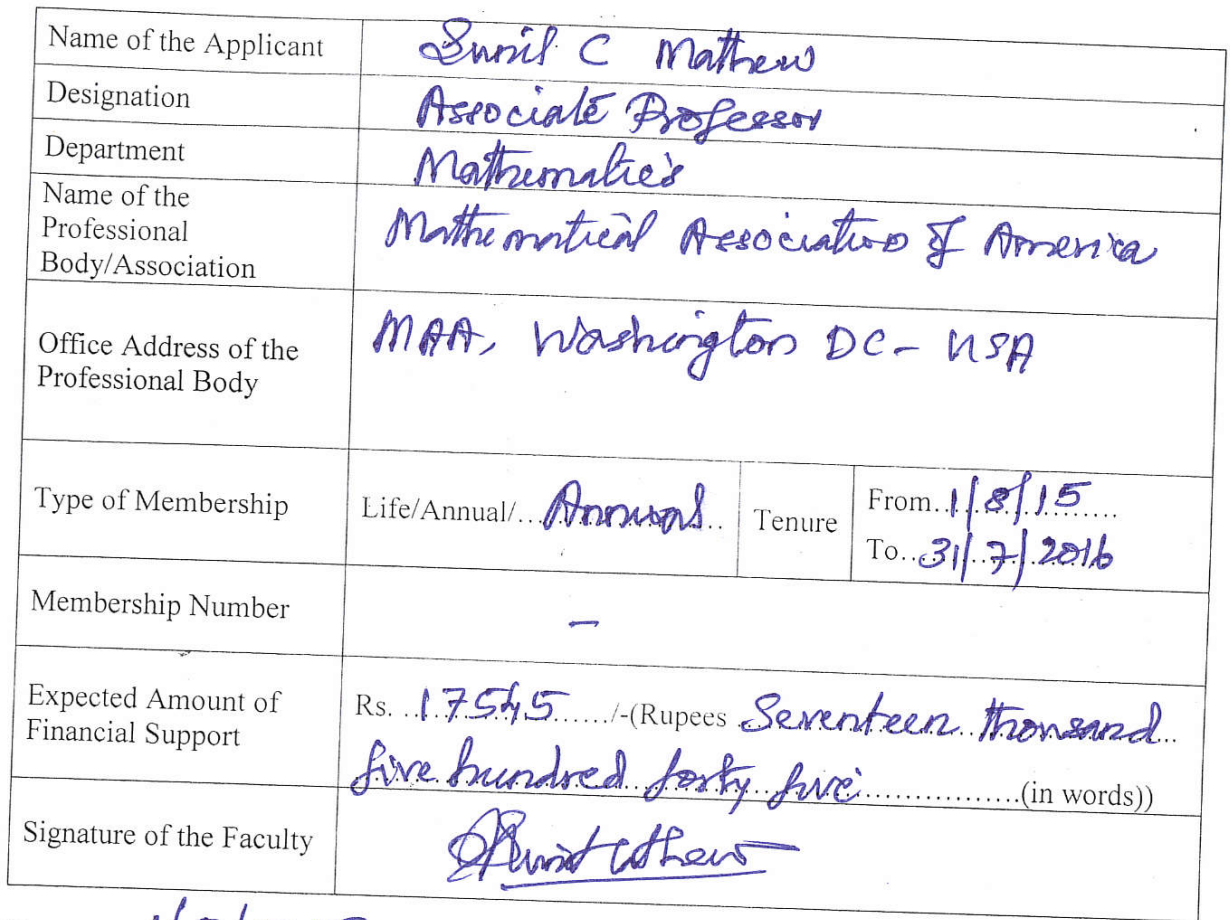 Name of the Applicant Sunil C Mathew
Designation Associate Professor
Department Mathematics
Name of the
Professional
Body/Association
Mathematical Association of America
Office Address of the
Professional Body
MAA, Washington DC - USA
Type of Membership Life/Annual/...Annual.. Tenure From..1/8/15......
To...31/7/2016
Membership Number –
Expected Amount of
Financial Support
Rs. ..17545....../-(Rupees .Seventeen thousand..
five hundred forty five.................(in words))
Signature of the Faculty